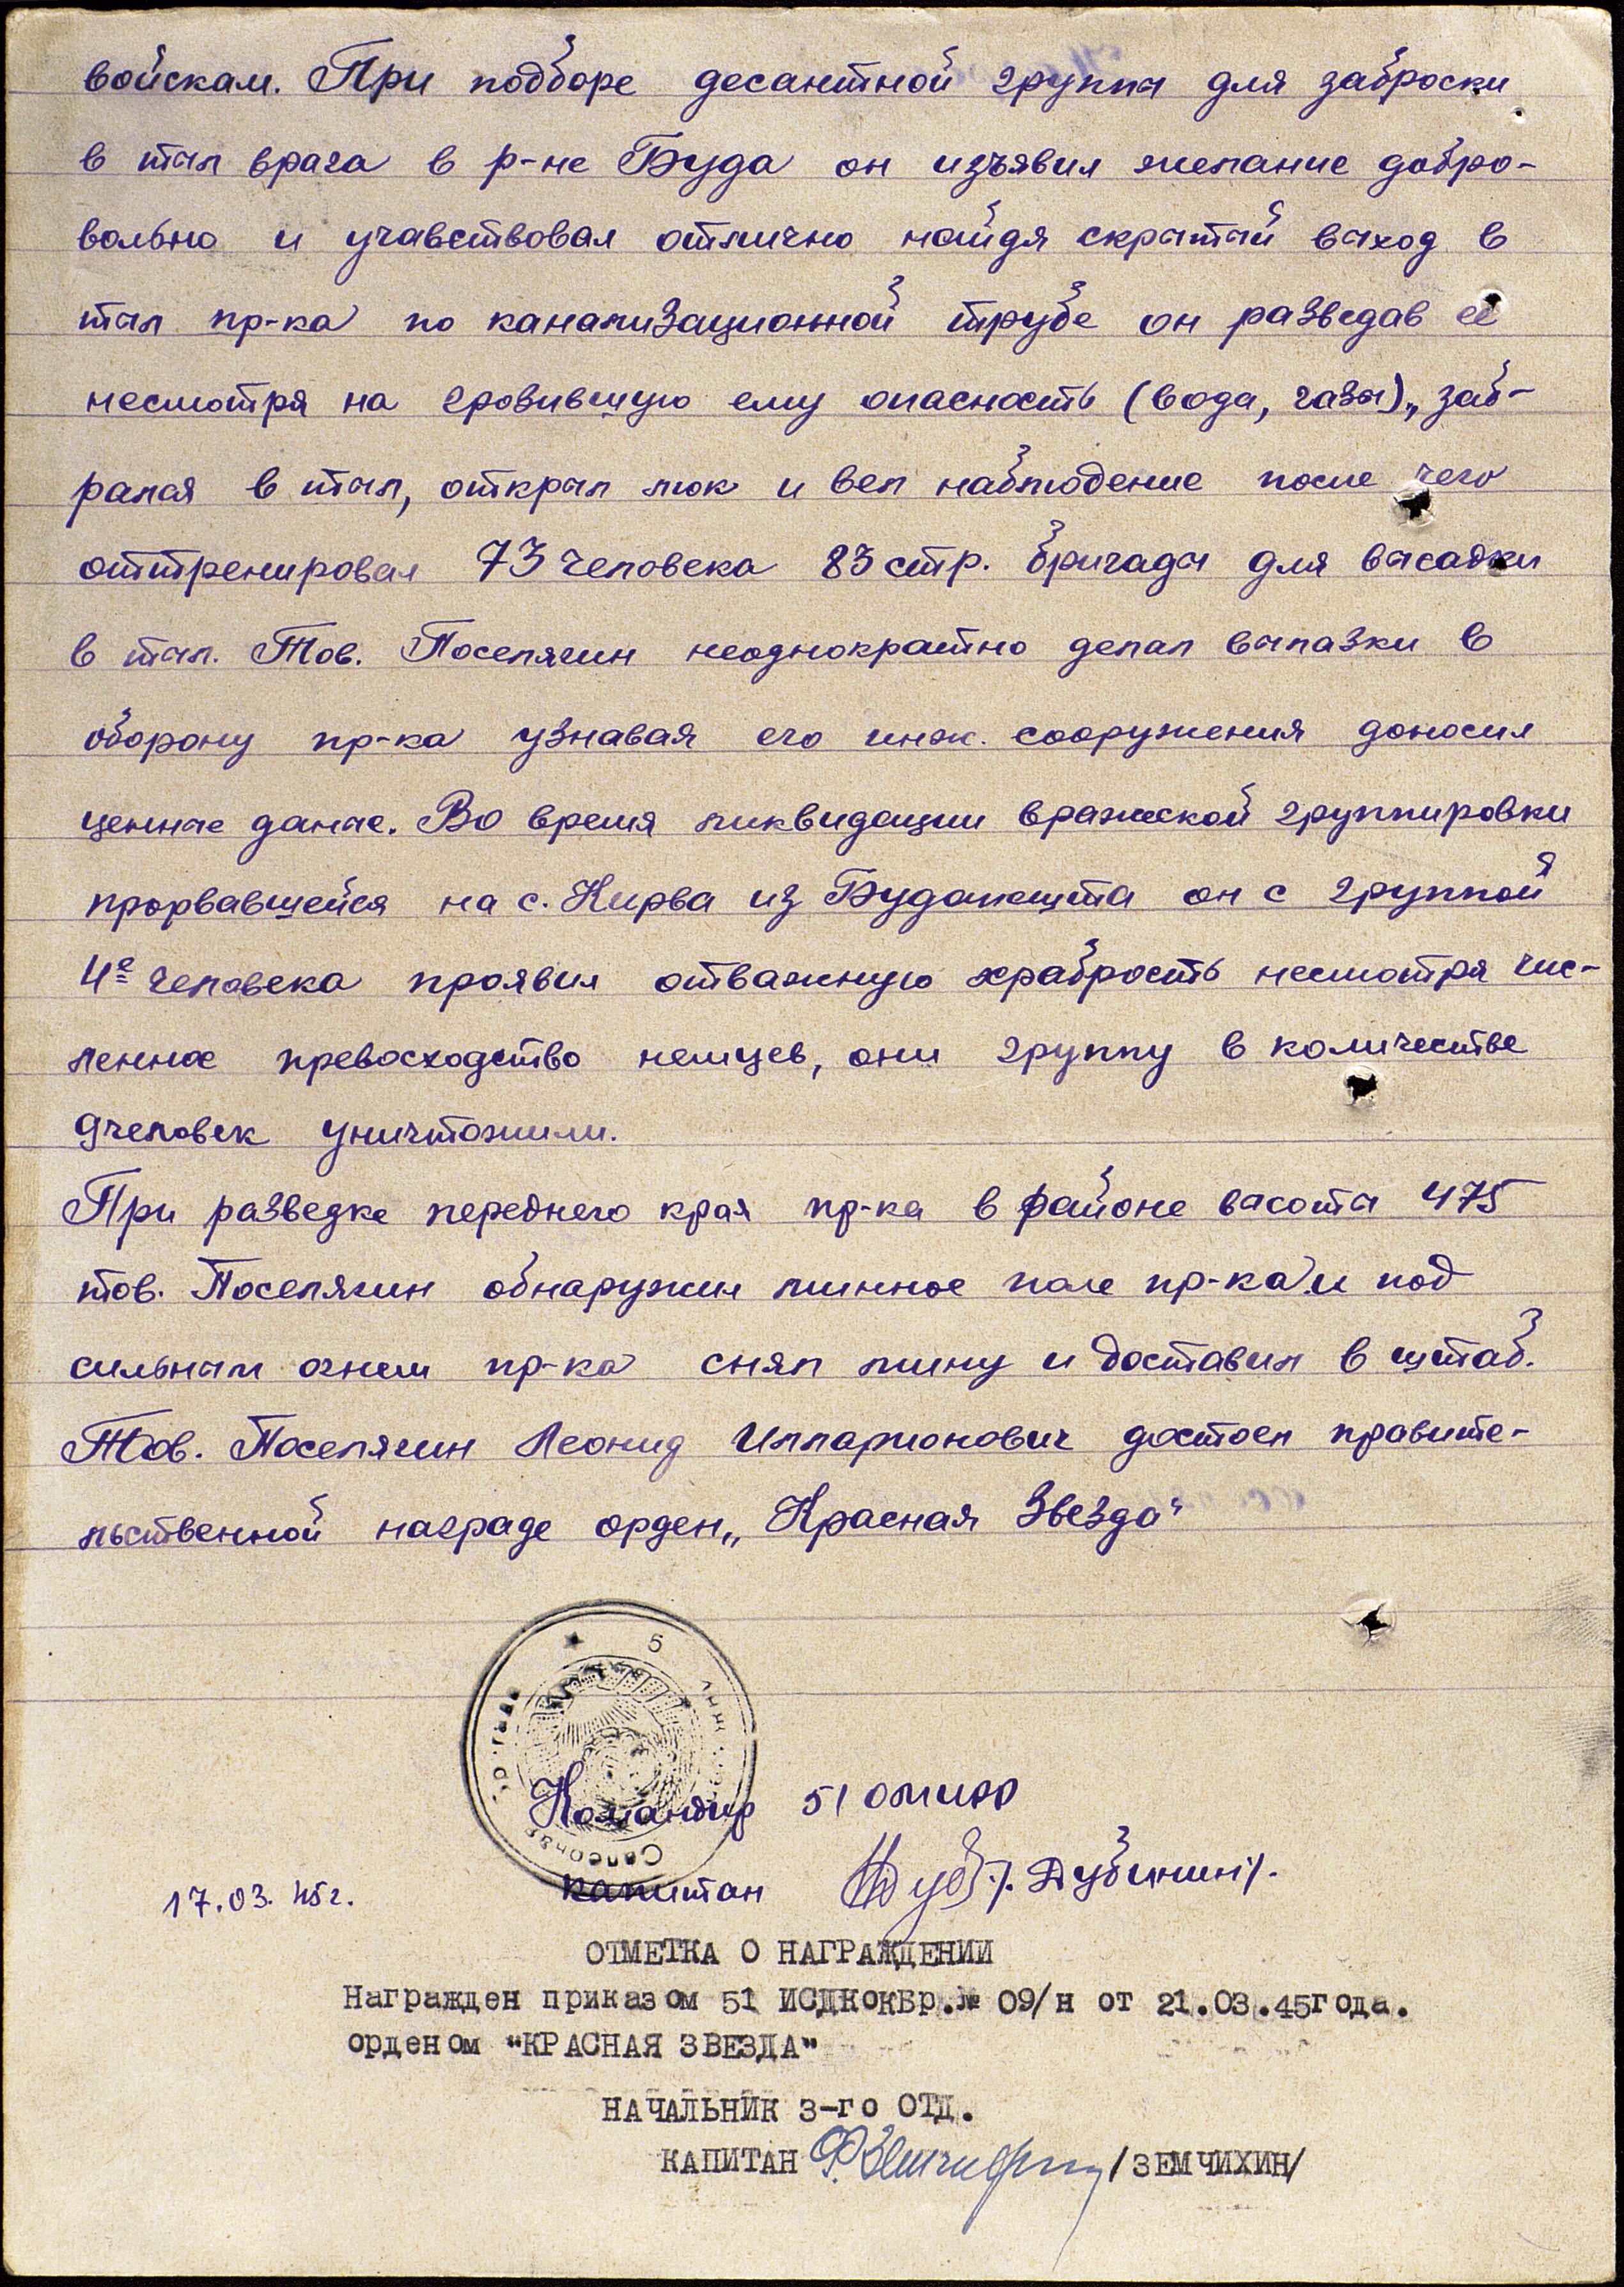 войскам. При подборе десантной группы для заброски
в тыл врага в р-не Буда он изъявил желание добро-
вольно и учавствовал отлично найдя скрытый выход в
тыл пр-ка по канализационной трубе он разведав её
несмотря на грозившую ему опасность (вода, газы),, заб-
рался в тыл, открыл люк и вел наблюдение после чего
оттренировал 73 человека 83 стр. бригады для высадки
в тыл. Тов. Поселягин неоднократно делал вылазки в
оборону пр-ка узнавая его инж. сооружения доносил
ценные даные. Во время ликвидации вражеской группировки
прорвавшейся на с. Кирва из Будапешта он с группой
4е человека проявил отважную храбрость несмотря чис-
ленное превосходство немцев, они группу в количестве
9человек уничтожили.
При разведке переднего края пр-ка в районе высоты 475
тов. Поселягин обнаружил минное поле пр-ка и под
сильным огнем пр-ка снял мину и доставил в штаб.
Тов. Поселягин Леонид Илларионович достоен правите-
льственной награде орден „Красная Звезда"
5 инж
Саперная
Командир 51 омиб
17.03.45г.
капитан /Дубинин/.
ОТМЕТКА О НАГРАЖДЕНИИ
Награжден приказом 51 ИСДКОКБр.№ 09/н от 21.03.45года.
орденом "КРАСНАЯ ЗВЕЗДА"
НАЧАЛЬНИК 3-го ОТД.
КАПИТАН /ЗЕМЧИХИН/